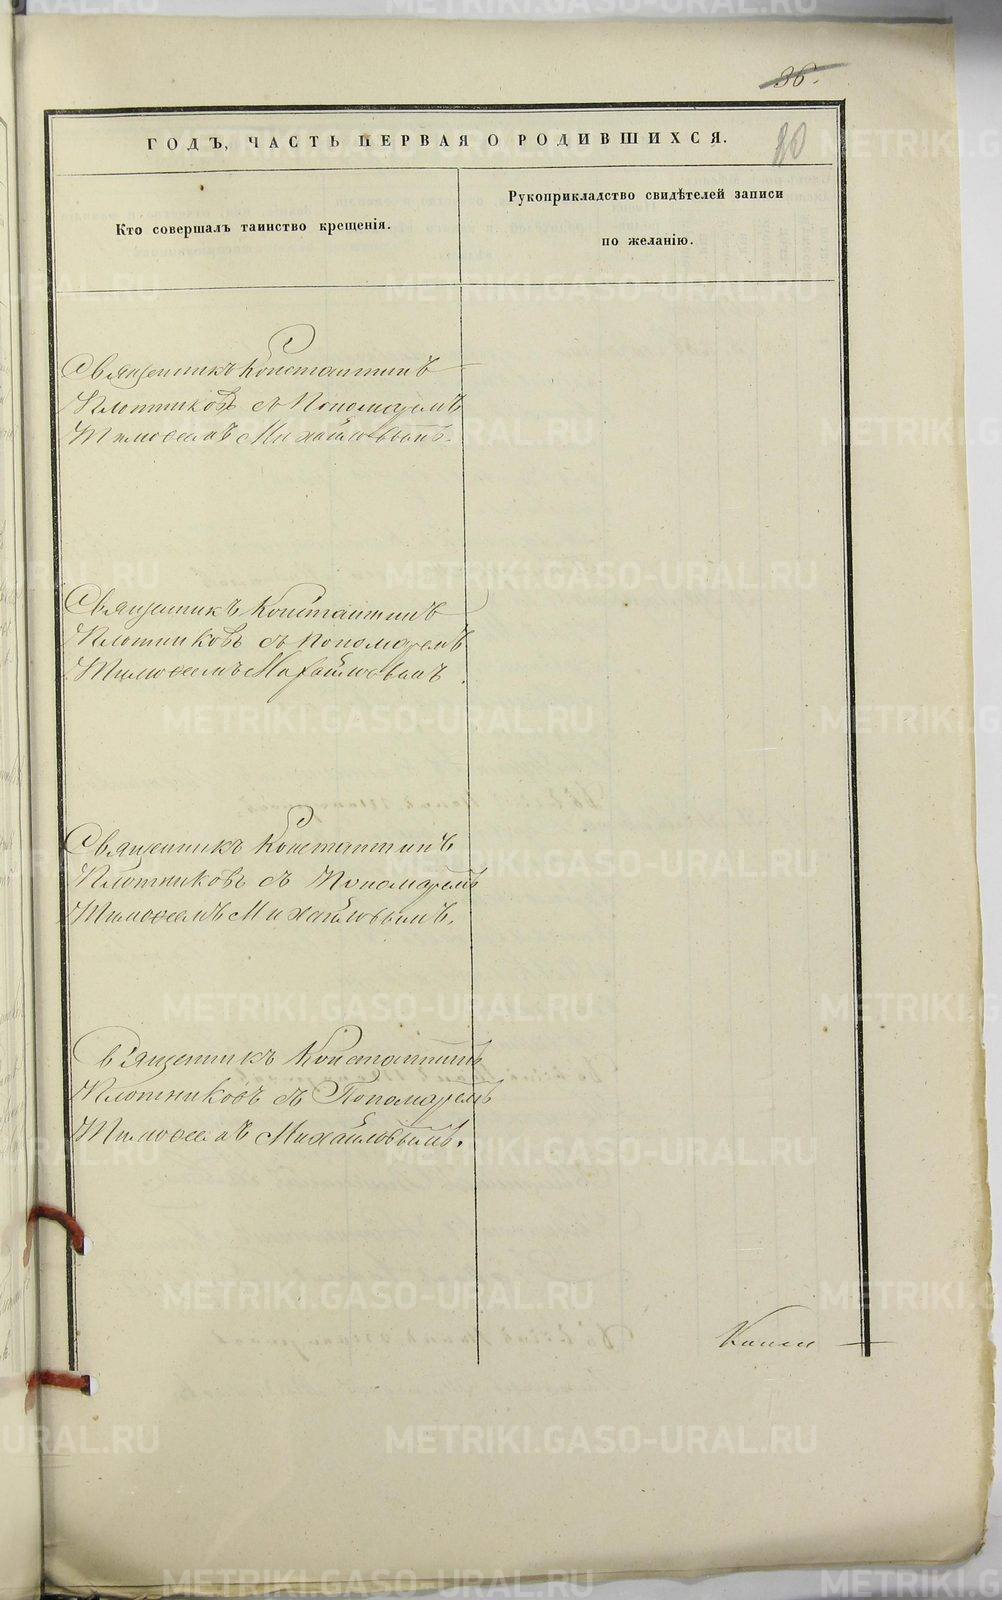 36.
ГОДЪ, ЧАСТЬ ПЕРВАЯ О РОДИВШИХСЯ.
Кто совершалъ таинство крещенія.
Рукоприкладство свидѣтелей записи
по желанію.
Священникъ Константинъ
Плотниковъ съ Пономаремъ
Тимоѳеемъ Михайловымъ.
Священникъ Константинъ
Плотниковъ съ Пономаремъ
Тимоѳеемъ Михайловымъ.
Священникъ Константинъ
Плотниковъ съ Пономаремъ
Тимоѳеемъ Михайловымъ.
Священникъ Константинъ
Плотниковъ съ Пономаремъ
Тимоѳеемъ Михайловымъ.
METRIKI.GASO-URAL.RU